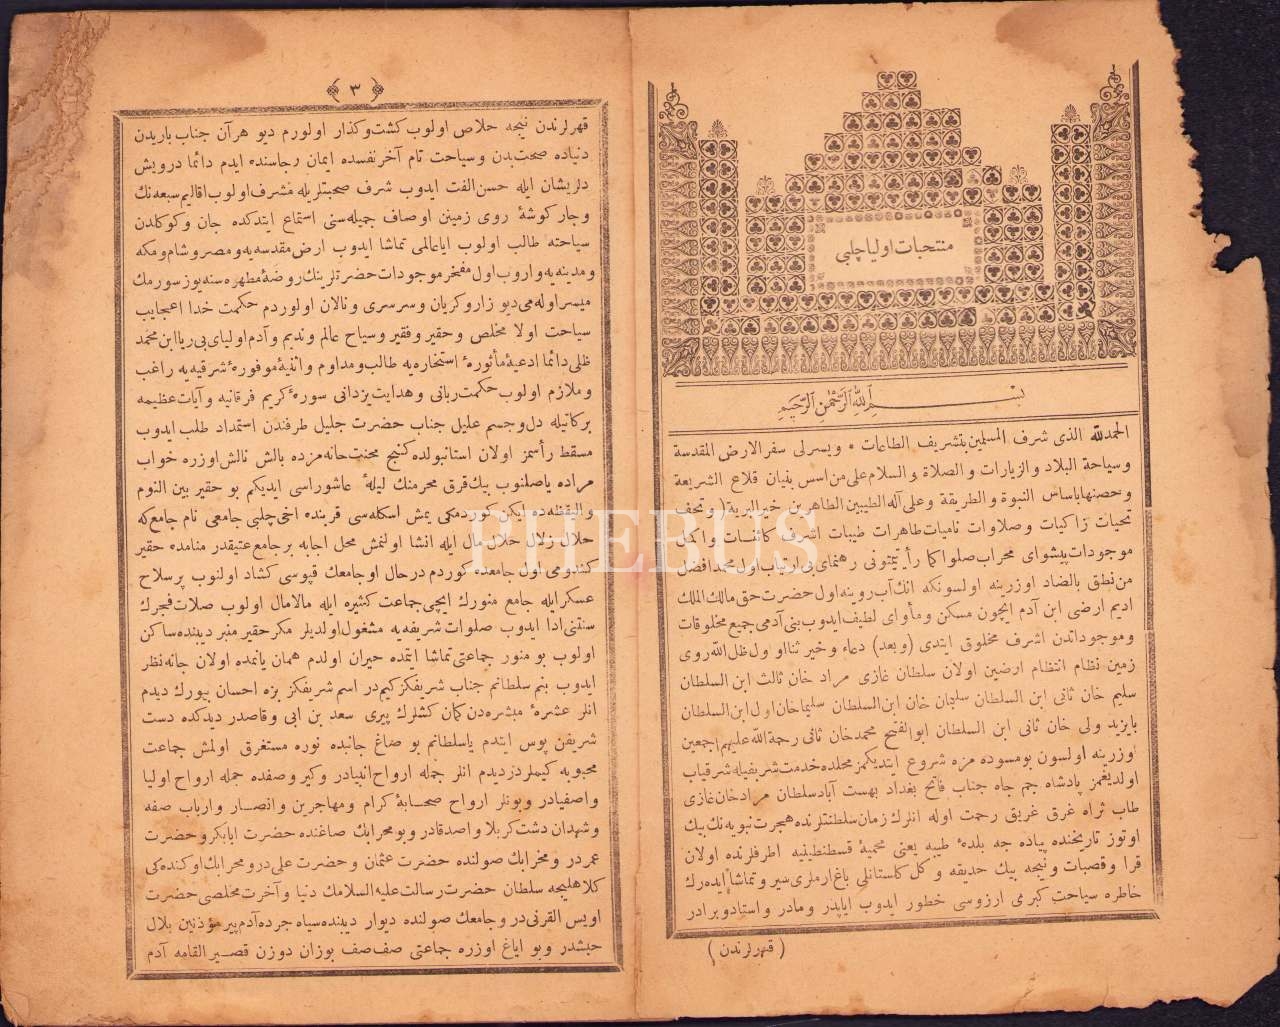 منتخبات اوليا چلبى
بسم الله الرحمن الرحيم
الحمد لله الذى شرف المسلمين بتشريف الطاعات * ويسرلى سفر الارض المقدسة
وسياحة البلاد والزيارات و الصلاة و السلام على من اسس بنيان قلاع الشريعة
وحصنها باساس النبوة و الطريقة وعلى آله الطيبين الطاهرين خير البرية (وتحف
تحيات زاكيات و صلاوات ناميات طاهرات طيبات اشرف كائنات و اكمل
موجودات پيشواى محراب صلوا كما رأيتمونى رهنماى بى ارتياب اول محمد افضل
من نطق بالضاد اوزرينه اولسونكه انك آب رويته اول حضرت حق مالك الملك
اديم ارضى ابن آدم ايچون مسكن و مأواى لطيف ايدوب بنى آدمى جميع مخلوقات
وموجوداتدن اشرف مخلوق ايتدى (وبعد) دعاء و خير ثنا اول ظل الله روى
زمين نظام انتظام ارضين اولان سلطان غازى مراد خان ثالث ابن السلطان
سليم خان ثانى ابن السلطان سليمان خان ابن السلطان سليمخان اول ابن السلطان
بايزيد ولى خان ثانى ابن السلطان ابو الفتح محمد خان ثانى رحمة الله عليهم اجمعين
اوزرينه اولسون بو مسوده مزه شروع ايتديكمز محلده خدمت شريفيله شرفياب
اولديغمز پادشاه جم جاه جناب فاتح بغداد بهشت آباد سلطان مراد خان غازى
طاب ثراه غرق غريق رحمت اوله انلرك زمان سلطنتلرنده هجرت نبويه نك بيك
اوتوز تاريخنده پياده جه بلدهٔ طيبه يعنى محميهٔ قسطنطينيه اطرفلرنده اولان
قرا و قصبات و نيجه بيك حديقه و كل كلستانلى باغ ارملرى سير و تماشا ايده رك
خاطره سياحت كبرى آرزوسى خطور ايدوب ايا پدر و مادر و استاد و برادر
( قهرلرندن )
٣
قهرلرندن نيجه خلاص اولوب كشت و كذار اولورم ديو هر آن جناب باريدن
دنياده صحت بدن و سياحت تام آخر نفسده ايمان رجاسنده ايدم دائما درويش
دلريشان ايله حسن الفت ايدوب شرف صحبتلريله مشرف اولوب اقاليم سبعه نك
و چار كوشهٔ روى زمينن اوصاف جميله سنى استماع ايتدكده جان و كوكلدن
سياحته طالب اولوب ايا عالمى تماشا ايدوب ارض مقدسه يه و مصر و شام و مكه
و مدينه يه واروب اول مفخر موجودات حضرتلرينك روضهٔ مطهره سنه يوز سورمك
ميسر اوله مى ديو زار و كريان و سرسرى و نالان اولوردم حكمت خدا اعجايب
سياحت اولا مخلص و حقير و فقير و سياح عالم و نديم و آدم اولياى بى ريا ابن محمد
ظلى دائما ادعيهٔ مأثورهٔ استخاره يه طالب و مداوم و اثنيهٔ موفورهٔ شرقيه يه راغب
و ملازم اولوب حكمت ربانى و هدايت يزدانى سورهٔ كريم فرقانيه و آيات عظيمه
بركاتيله دل و جسم عليل جناب حضرت جليل طرفندن استمداد طلب ايدوب
مسقط رأسمز اولان استانبولده كنج محنت خانه مزده بالش نالش اوزره خواب
مراده ياصلنوب بيك قرق محرمنك ليلهٔ عاشوراسى ايديكم بو حقير بين النوم
واليقظه ده ايكن كوردمكى يمش اسكله سى قربنده اخى چلبى جامعى نام جامع كه
حلال زلال حلال مال ايله انشا اولنمش محل اجابه بر جامع عتيقدر منامده حقير
كندومى اول جامعده كوردم در حال او جامعك قپوسى كشاد اولنوب پر سلاح
عسكر ايله جامع منورك ايچى جماعت كثيره ايله مالامال اولوب صلات فجرك
سنتنى ادا ايدوب صلوات شريفه يه مشغول اولديلر مكر حقير منبر ديبنده ساكن
اولوب بو منور جماعتى تماشا ايتمده حيران اولدم همان يانمده اولان جانه نظر
ايدوب بنم سلطانم جناب شريفكز كيم در اسم شريفكز بزه احسان بيورك ديدم
انلر عشرهٔ مبشره دن كمان كشلرك پيرى سعد بن ابى وقاصدر ديدكده دست
شريفن پوس ايتدم يا سلطانم بو صاغ جانبده نوره مستغرق اولمش جماعت
محبوبه كيملردز ديدم انلر جمله ارواح انبيادر و كيرو صفده جمله ارواح اوليا
و اصفيادر و بونلر ارواح صحابهٔ كرام و مهاجرين و انصار و ارباب صفه
و شهدان دشت كربلا و اصدقادر و بو محرابك صاغنده حضرت ابابكر و حضرت
عمردر و محرابك صولنده حضرت عثمان و حضرت على در و محرابك اوكنده كى
كلاهليجه سلطان حضرت رسالت عليه السلامك دنيا و آخرت مخلصى حضرت
اويس القرنى در و جامعك صولنده ديوار ديبنده سياه چرده آدم پير مؤذنين بلال
حبشدر و بو اياغ اوزره جماعتى صف صف بوزان دوزن قصير القامه آدم
PHEBUS